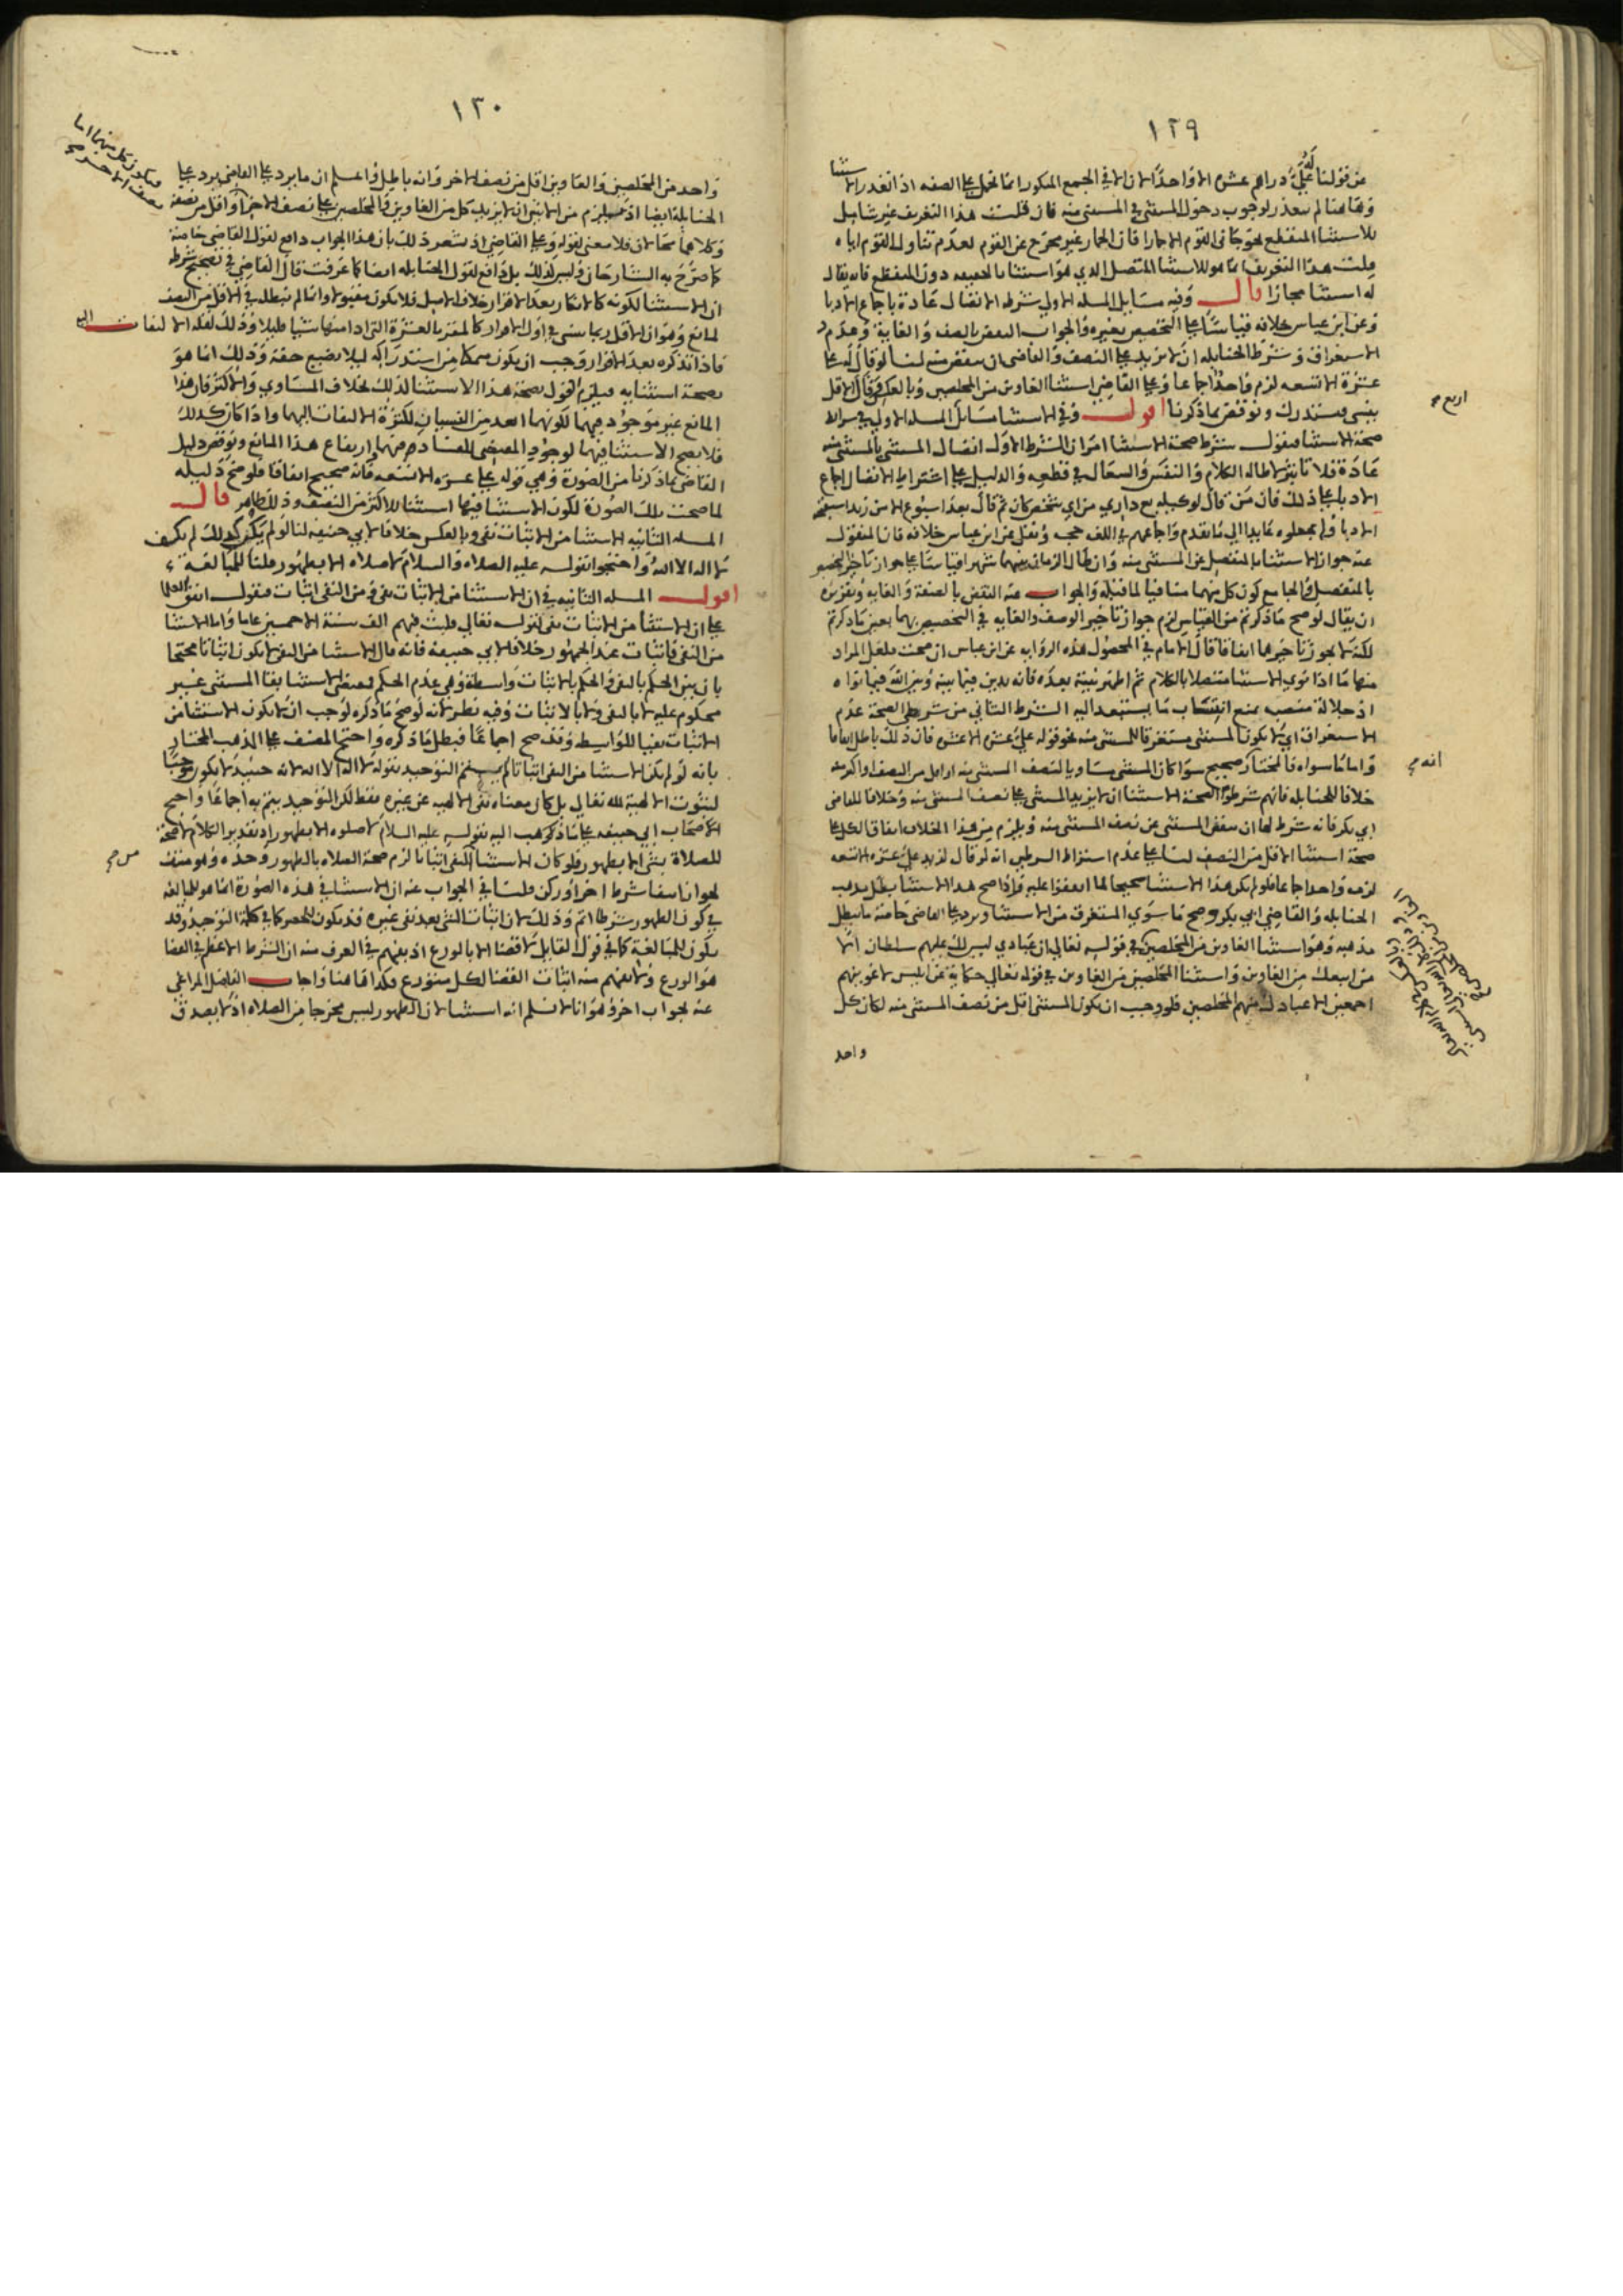 ١٢٩
من قولنا له علي دراهم عشرة الا واحدا لان الا في الجمع المنكور انما تحمل على الصفه اذا تعذر الاستثنا
وهاهنا لم يتعذر لوجوب دخول المستثنى في المستثنى منه فان قلت هذا التعريف غير شامل
للاستثنا المنقطع نحو جاني القوم الا حمارا فان الحمار غير مخرج عن القوم لعدم تناول القوم اياه
قلت هذا التعريف انما هو للاستثنا المتصل الذي هو استثنا بالحقيقه دون المنقطع فانه يقال
له استثنا مجازا قال وفيه مسايل المسله الاولى شرطه الاتصال عادة باجماع الادبا
وعن ابن عباس خلافه قياسا على التخصيص بغيره والجواب النقض بالصفه والغاية وعدم
الاستغراق وشرط الحنابله ان لا يزيد على النصف والقاضي ان ينقص منه لنا لو قال له علي
عشرة الا تسعه لزم واحد اجماعا وعلى القاضي استثنا الغاوين من المخلصين وبالعكس وقال الاقل
ينسى فيستدرك ونوقض بما ذكرنا اقول وفي الاستثنا مسايل المسله الاولى في شرايط
صحة الاستثنا فنقول شرط صحة الاستثنا امران الشرط الاول اتصال المستثنى بالمستثنى منه
عادة فلا تاثير لاطالة الكلام والنفس والسعال في قطعه والدليل على اشتراط الاتصال اجماع
الادبا على ذلك فان من قال لوكيله بع داري من اي شخص كان ثم قال بعد اسبوع الا من زيد استقبحه
الادبا ولم يجعلوه عايدا الى ما تقدم واجماعهم في اللغه حجه ونقل عن ابن عباس خلافه فان المنقول
عنه جواز الاستثنا بالمنفصل عن المستثنى منه وان طال الزمان بينهما شهرا قياسا على جواز تاخير التخصيص
بالمنفصل والجامع كون كل منهما منافيا لما قبله والجواب عنه النقض بالصفة والغاية وتقريره
ان يقال لو صح ما ذكرتم من القياس لزم جواز تاخير الوصف والغايه في التخصيص بهما بعين ما ذكرتم
لكنه لا يجوز تاخيرها اتفاقا قال الامام في المحصول هذه الروايه عن ابن عباس ان صحت فلعل المراد
منها ما اذا نوى الاستثنا متصلا بالكلام ثم اظهر نيته بعده فانه يدين فيما بينه وبين الله فيما نواه
اذ جلالة منصبه يمنع انتساب ما يستبعد اليه الشرط الثاني من شرطي الصحة عدم
الاستغراق اي لا يكون المستثنى مستغرقا للمستثنى منه نحو قوله علي عشرة الا عشره فان ذلك باطل اتفاقا
واما ما سواه فالمختار صحيح سوا كان المستثنى مساويا لنصف المستثنى منه او اقل من النصف او اكثر منه
خلافا للحنابله فانهم شرطوا لصحة الاستثنا ان لا يزيد المستثنى على نصف المستثنى منه وخلافا للقاضي
ابي بكر فانه شرط لها ان ينقص المستثنى عن نصف المستثنى منه ويلزم من هذا الخلاف اتفاق الكل على
صحة استثنا الاقل من النصف لنا على عدم اشتراط الشرطين انه لو قال لزيد علي عشرة الا تسعه
لزمه واحد اجماعا فلو لم يكن هذا الاستثنا صحيحا لما اتفقوا عليه واذا صح هذا الاستثنا بطل مذهب
الحنابله والقاضي ابي بكر وصح ما سوى المستغرق من الاستثنا ويرد على القاضي خاصة ما يبطل
مذهبه وهو استثنا الغاوين من المخلصين في قوله تعالى ان عبادي ليس لك عليهم سلطان الا
من اتبعك من الغاوين واستثنا المخلصين من الغاوين في قوله تعالى حكاية عن ابليس لاغوينهم
اجمعين الا عبادك منهم المخلصين فلو وجب ان يكون المستثنى اقل من نصف المستثنى منه لكان كل
واحد
انه صح
١٣٠
واحد من المخلصين والغاوين اقل من نصف الاخر وانه باطل واعلم ان ما يرد على القاضي يرد على
الحنابلة ايضا اذ حينئذ يلزم من الايتين ان لا يزيد كل من الغاوين والمخلصين على نصف الاخر او اقل من نصفه
وكلاهما محالان فلا معنى لقوله وعلى القاضي اذ يشعر ذلك بان هذا الجواب دافع لقول القاضي خاصة
كما صرح به الشارحان وليس كذلك بل دافع لقول الحنابله ايضا كما عرفت قال القاضي في تصحيح شرطه
ان الاستثنا لكونه كالانكار بعد الاقرار خلاف الاصل فلا يكون مقبولا وانما لم يبطله في الاقل من النصف
لمانع وهو ان الاقل ربما ينسى في اول الاقرار كالمقر بالعشرة التي ادا منها شيا قليلا وذلك لقلة الالتفات اليه
فاذا تذكره بعد الاقرار وجب ان يكون متمكنا من استدراكه ليلا يضيع حقه وذلك انما هو
بصحة استثنايه فيلزم القول بصحة هذا الاستثنا لذلك بخلاف المساوي والاكثر فان هذا
المانع غير موجود فيهما لكونهما ابعد من النسيان لكثرة الالتفات اليهما واذا كان كذلك
فلا يصح الاستثنا فيهما لوجود المقتضي للفساد مع ارتفاع هذا المانع ونوقض دليل
القاضي بما ذكرنا من الصورة وهي قوله علي عشره الا تسعه فانه صحيح اتفاقا فلو صح دليله
لما صحت تلك الصورة لكون الاستثنا فيها استثنا للاكثر من النصف وذلك ظاهر قال
المسله الثانيه الاستثنا من الاثبات نفي وبالعكس خلافا لابي حنيفه لنا لو لم يكن كذلك لم يكف
لا اله الا الله واحتج بقوله عليه الصلاه والسلام لا صلاه الا بطهور قلنا للمبالغة
اقول المسله الثانيه في ان الاستثنا من الاثبات نفي ومن النفي اثبات فنقول اتفق العلما
على ان الاستثنا من الاثبات نفي كقوله تعالى فلبث فيهم الف سنة الا خمسين عاما واما الاستثنا
من النفي فاثبات عند الجمهور خلافا لابي حنيفة فانه قال الاستثنا من النفي لا يكون اثباتا محتجا
بان بين الحكم بالنفي والحكم بالاثبات واسطة وهي عدم الحكم فمقتضى الاستثنا بقا المستثنى غير
محكوم عليه لا بالنفي ولا بالاثبات وفيه نظر لانه لو صح ما ذكره لوجب ان لا يكون الاستثنا من
الاثبات نفيا للواسطه وقد صح اجماعا فبطل ما ذكره واحتج المصنف على المذهب المختار
بانه لو لم يكن الاستثنا من النفي اثباتا لم يتم التوحيد بقوله لا اله الا الله لانه حينيذ لا يكون موجبا
لثبوت الالهية لله تعالى بل كان معناه نفي الالهيه عن غيره فقط لكن التوحيد يتم به اجماعا واحتج
اصحاب ابي حنيفه على ما ذكر مذهبا اليه بقوله عليه السلام لا صلوه الا بطهور اذ تقدير الكلام لا صحة
للصلاة بشي الا بطهور فلو كان الاستثنا من النفي اثباتا لزم صحة الصلاه بالطهور وحده وهو منتف
لجواز انتفا شرط اخر او ركن قلنا في الجواب عنه ان الاستثنا في هذه الصورة انما هو للمبالغه
في كون الطهور شرطا اتم وذلك لان اثبات الشي بعد نفي غيره قد يكون للحصر كما في كلمة التوحيد وقد
يكون للمبالغة كما في قول القايل لا قضا الا بالورع اذ يفهم في العرف منه ان الشرط الاعظم في القضا
هو الورع ولا يفهم منه اثبات القضا لكل متورع فكذا هاهنا واجاب الفاضل المراغي
عنه بجواب اخر وهو انا لا نسلم انه استثنا لان الطهور ليس مخرجا من الصلاه اذ لا يصدق